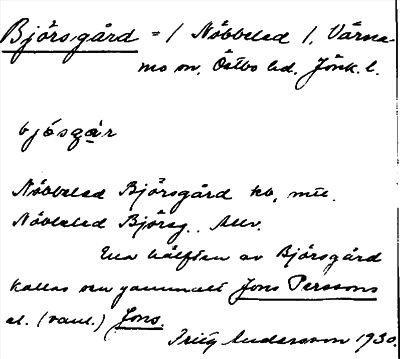 Björsgård = / Nöbbelad /, Värna-
mo sn, Östbo hd. Jönk. l.
bjösgạr
Nöbbelad Björsgård kb,
Nöbbelad Björsg..
Ena hälften av Björsgård
kallas sen gammalt Jons Perssons
el. (vanl.) Jons.
Fritz Andersson 1930.